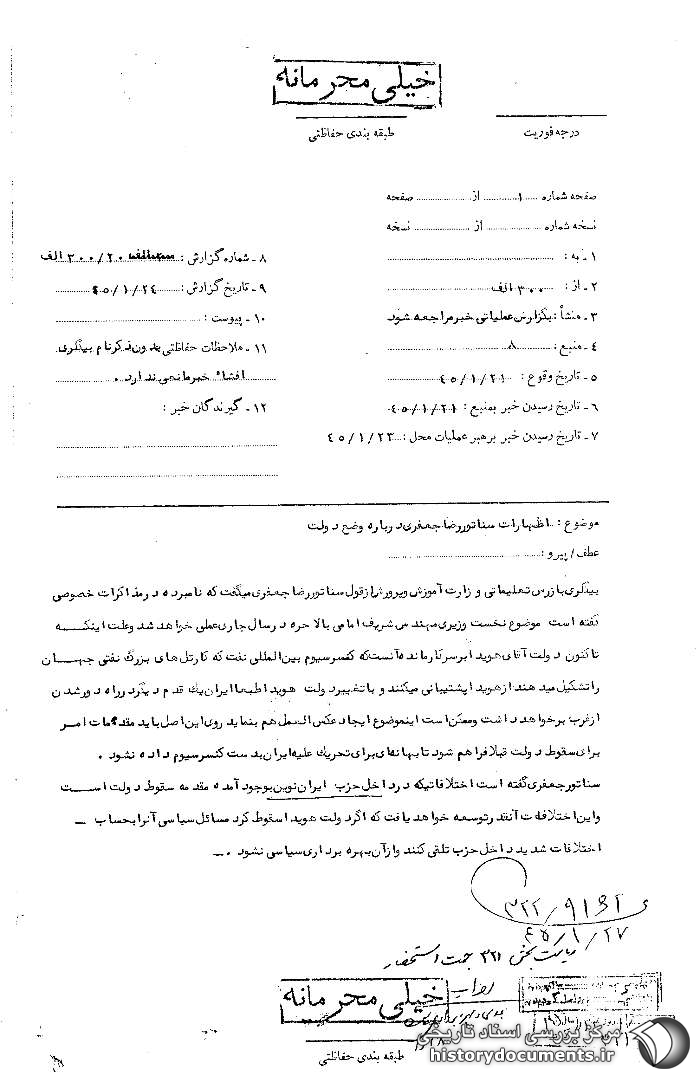 خیلی محرمانه
طبقه بندی حفاظتی
درجه فوریت
صفحه شماره ۱ از صفحه
نسخه شماره از نسخه
۱ـ به :
۲ـ از : ۳۰۰ الف
۳ـ منشأ : بگزارش عملیاتی خبر مراجعه شود
۴ـ منبع : ۸
۵ـ تاریخ وقوع : ۴۵/۱/۲۱
۶ـ تاریخ رسیدن خبر بمنبع : ۴۵/۱/۲۱
۷ـ تاریخ رسیدن خبر برهبر عملیات محل : ۴۵/۱/۲۳
۸ـ شماره گزارش : ۳۰۰/۲۰ الف
۹ـ تاریخ گزارش : ۴۵/۱/۲۴
۱۰ـ پیوست :
۱۱ـ ملاحظات حفاظتی بدون ذکر نام بیدگری
افشاء خبر مانعی ندارد .
۱۲ـ گیرندگان خبر :
موضوع : اظهارات سناتور رضا جعفری درباره وضع دولت
عطف/پیرو :
بیدگری بازرس تعلیماتی وزارت آموزش وپرورش از قول سناتور رضا جعفری میگفت که نامبرده در مذاکرات خصوصی
گفته است موضوع نخست وزیری مهندس شریف امامی بالاخره در سال جاری عملی خواهد شد وعلت اینکه
تاکنون دولت آقای هویدا بر سر کار مانده آنست که کنسرسیوم بین المللی نفت که کارتل های بزرگ نفتی جهان
را تشکیل میدهند از هویدا پشتیبانی میکنند و با تغییر دولت هویدا طبعا ایران یک قدم دیگر در راه دور شدن
از غرب برخواهد داشت وممکن است اینموضوع ایجاد عکس العمل هم بنماید روی این اصل باید مقدمات امر
برای سقوط دولت قبلا فراهم شود تا بهانه‌ای برای تحریک علیه ایران بدست کنسرسیوم داده نشود .
سناتور جعفری گفته است اختلافاتیکه در داخل حزب ایران نوین بوجود آمده مقدمه سقوط دولت است
واین اختلافات آنقدر توسعه خواهد یافت که اگر دولت هویدا سقوط کرد مسائل سیاسی آنرا بحساب ـ
اختلافات شدید داخل حزب تلقی کنند و از آن بهره برداری سیاسی نشود . ـ
۳۲۲/۹۱۶۲
۴۵/۱/۲۷
ریاست بخش ۳۲۱ جهت استحضار
خیلی محرمانه
طبقه بندی حفاظتی
مرکز بررسی اسناد تاریخی
historydocuments.ir